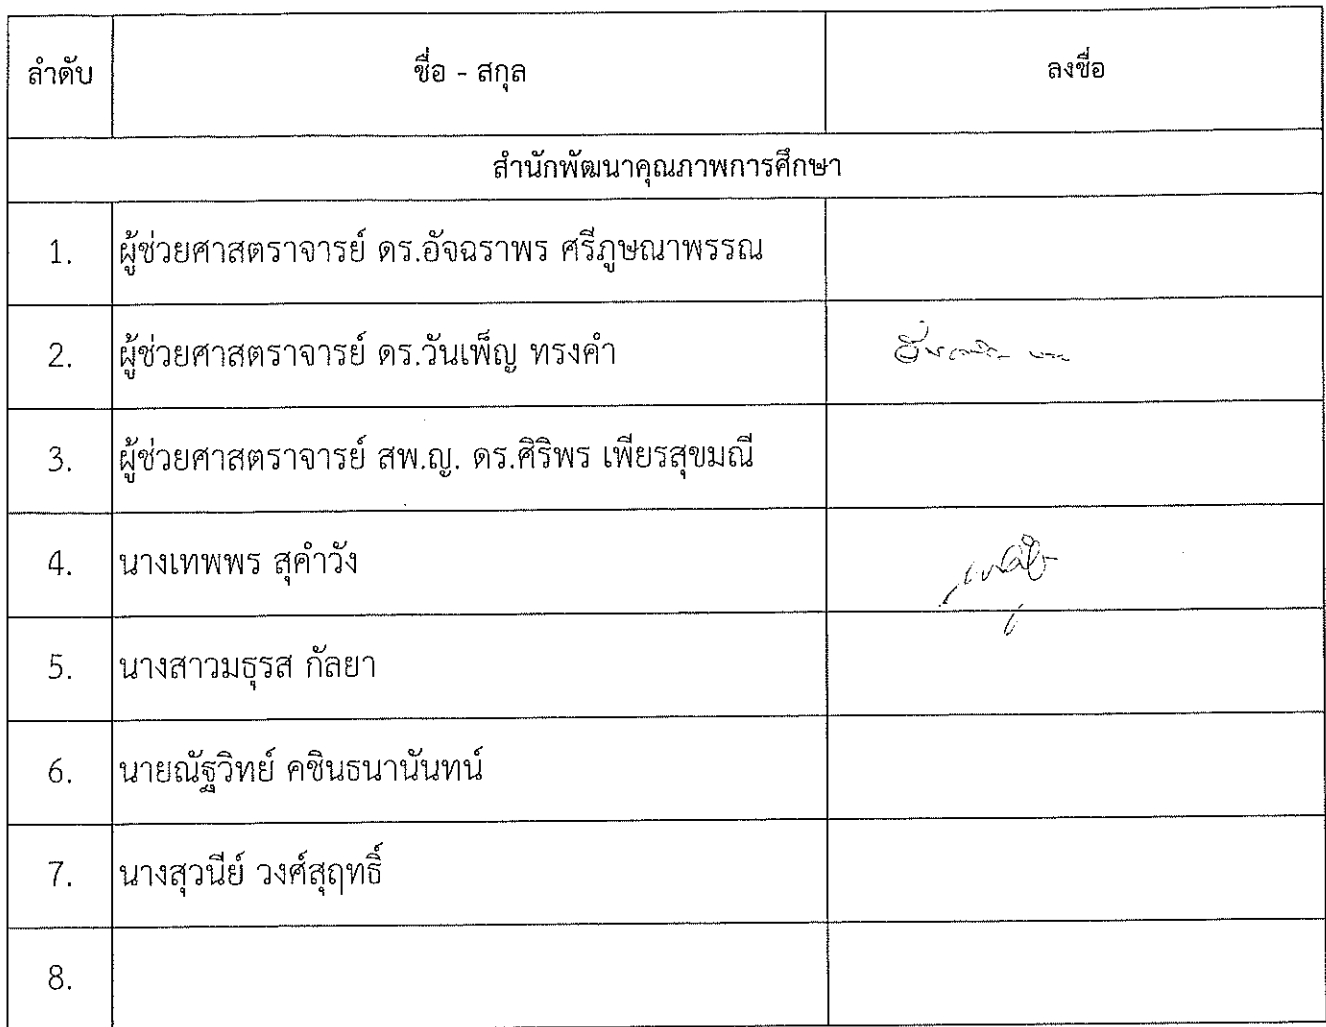 ลำดับ ชื่อ - สกุล ลงชื่อ
สำนักพัฒนาคุณภาพการศึกษา
1. ผู้ช่วยศาสตราจารย์ ดร.อัจฉราพร ศรีภูษณาพรรณ
2. ผู้ช่วยศาสตราจารย์ ดร.วันเพ็ญ ทรงคำ
3. ผู้ช่วยศาสตราจารย์ สพ.ญ. ดร.ศิริพร เพียรสุขมณี
4. นางเทพพร สุคำวัง
5. นางสาวมธุรส กัลยา
6. นายณัฐวิทย์ คชินธนานันทน์
7. นางสุวนีย์ วงศ์สุฤทธิ์
8.